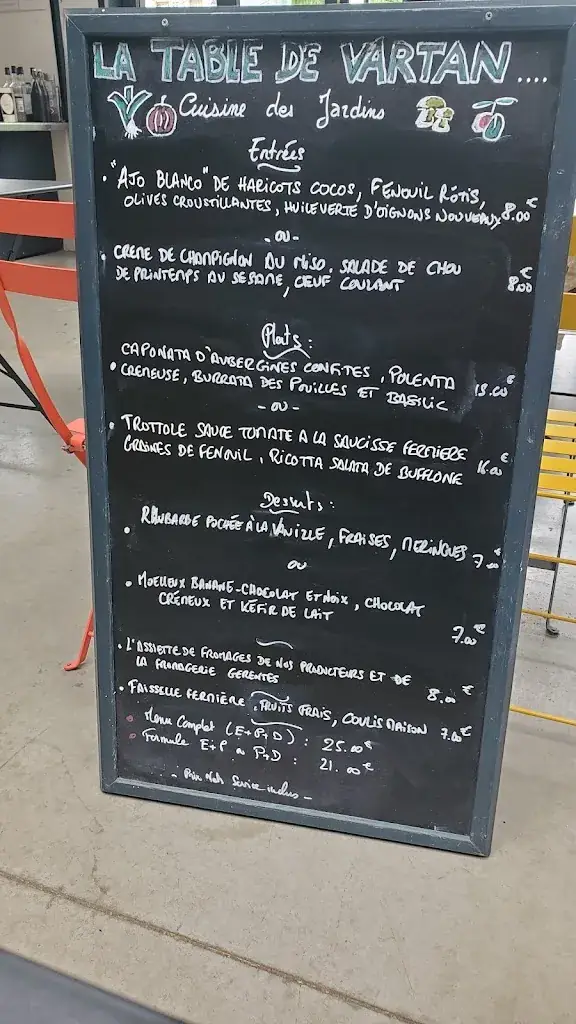 LA TABLE DE VARTAN....
Cuisine des Jardins
Entrées
• "AJO BLANCO" DE HARICOTS COCOS, FENOUIL RÔTIS,
OLIVES CROUSTILLANTES, HUILE VERTE D'OIGNONS NOUVEAUX 8.00€
- OU -
• CRÈME DE CHAMPIGNON AU MISO, SALADE DE CHOU
DE PRINTEMPS AU SESAME, OEUF COULANT 8.00€
Plats :
CAPONATA D'AUBERGINES CONFITES, POLENTA
• CREMEUSE, BURRATA DES POUILLES ET BASILIC 15.00€
- OU -
• TROTTOLE SAUCE TOMATE A LA SAUCISSE FERMIERE
GRAINES DE FENOUIL, RICOTTA SALATA DE BUFFLONE 16.00€
Desserts :
• RHUBARBE POCHÉE À LA VANILLE, FRAISES, MERINGUES 7.00€
OU
• MOELLEUX BANANE-CHOCOLAT ET NOIX, CHOCOLAT
CRÉMEUX ET KÉFIR DE LAIT
7.00€
• L'ASSIETTE DE FROMAGES DE NOS PRODUCTEURS ET DE
LA FROMAGERIE GERENTES 8.00€
• FAISSELLE FERMIÈRE, FRUITS FRAIS, COULIS MAISON 7.00€
Menu Complet (E+P+D) : 25.00€
Formule E+P ou P+D : 21.00€
- Prix Nets Service inclus -